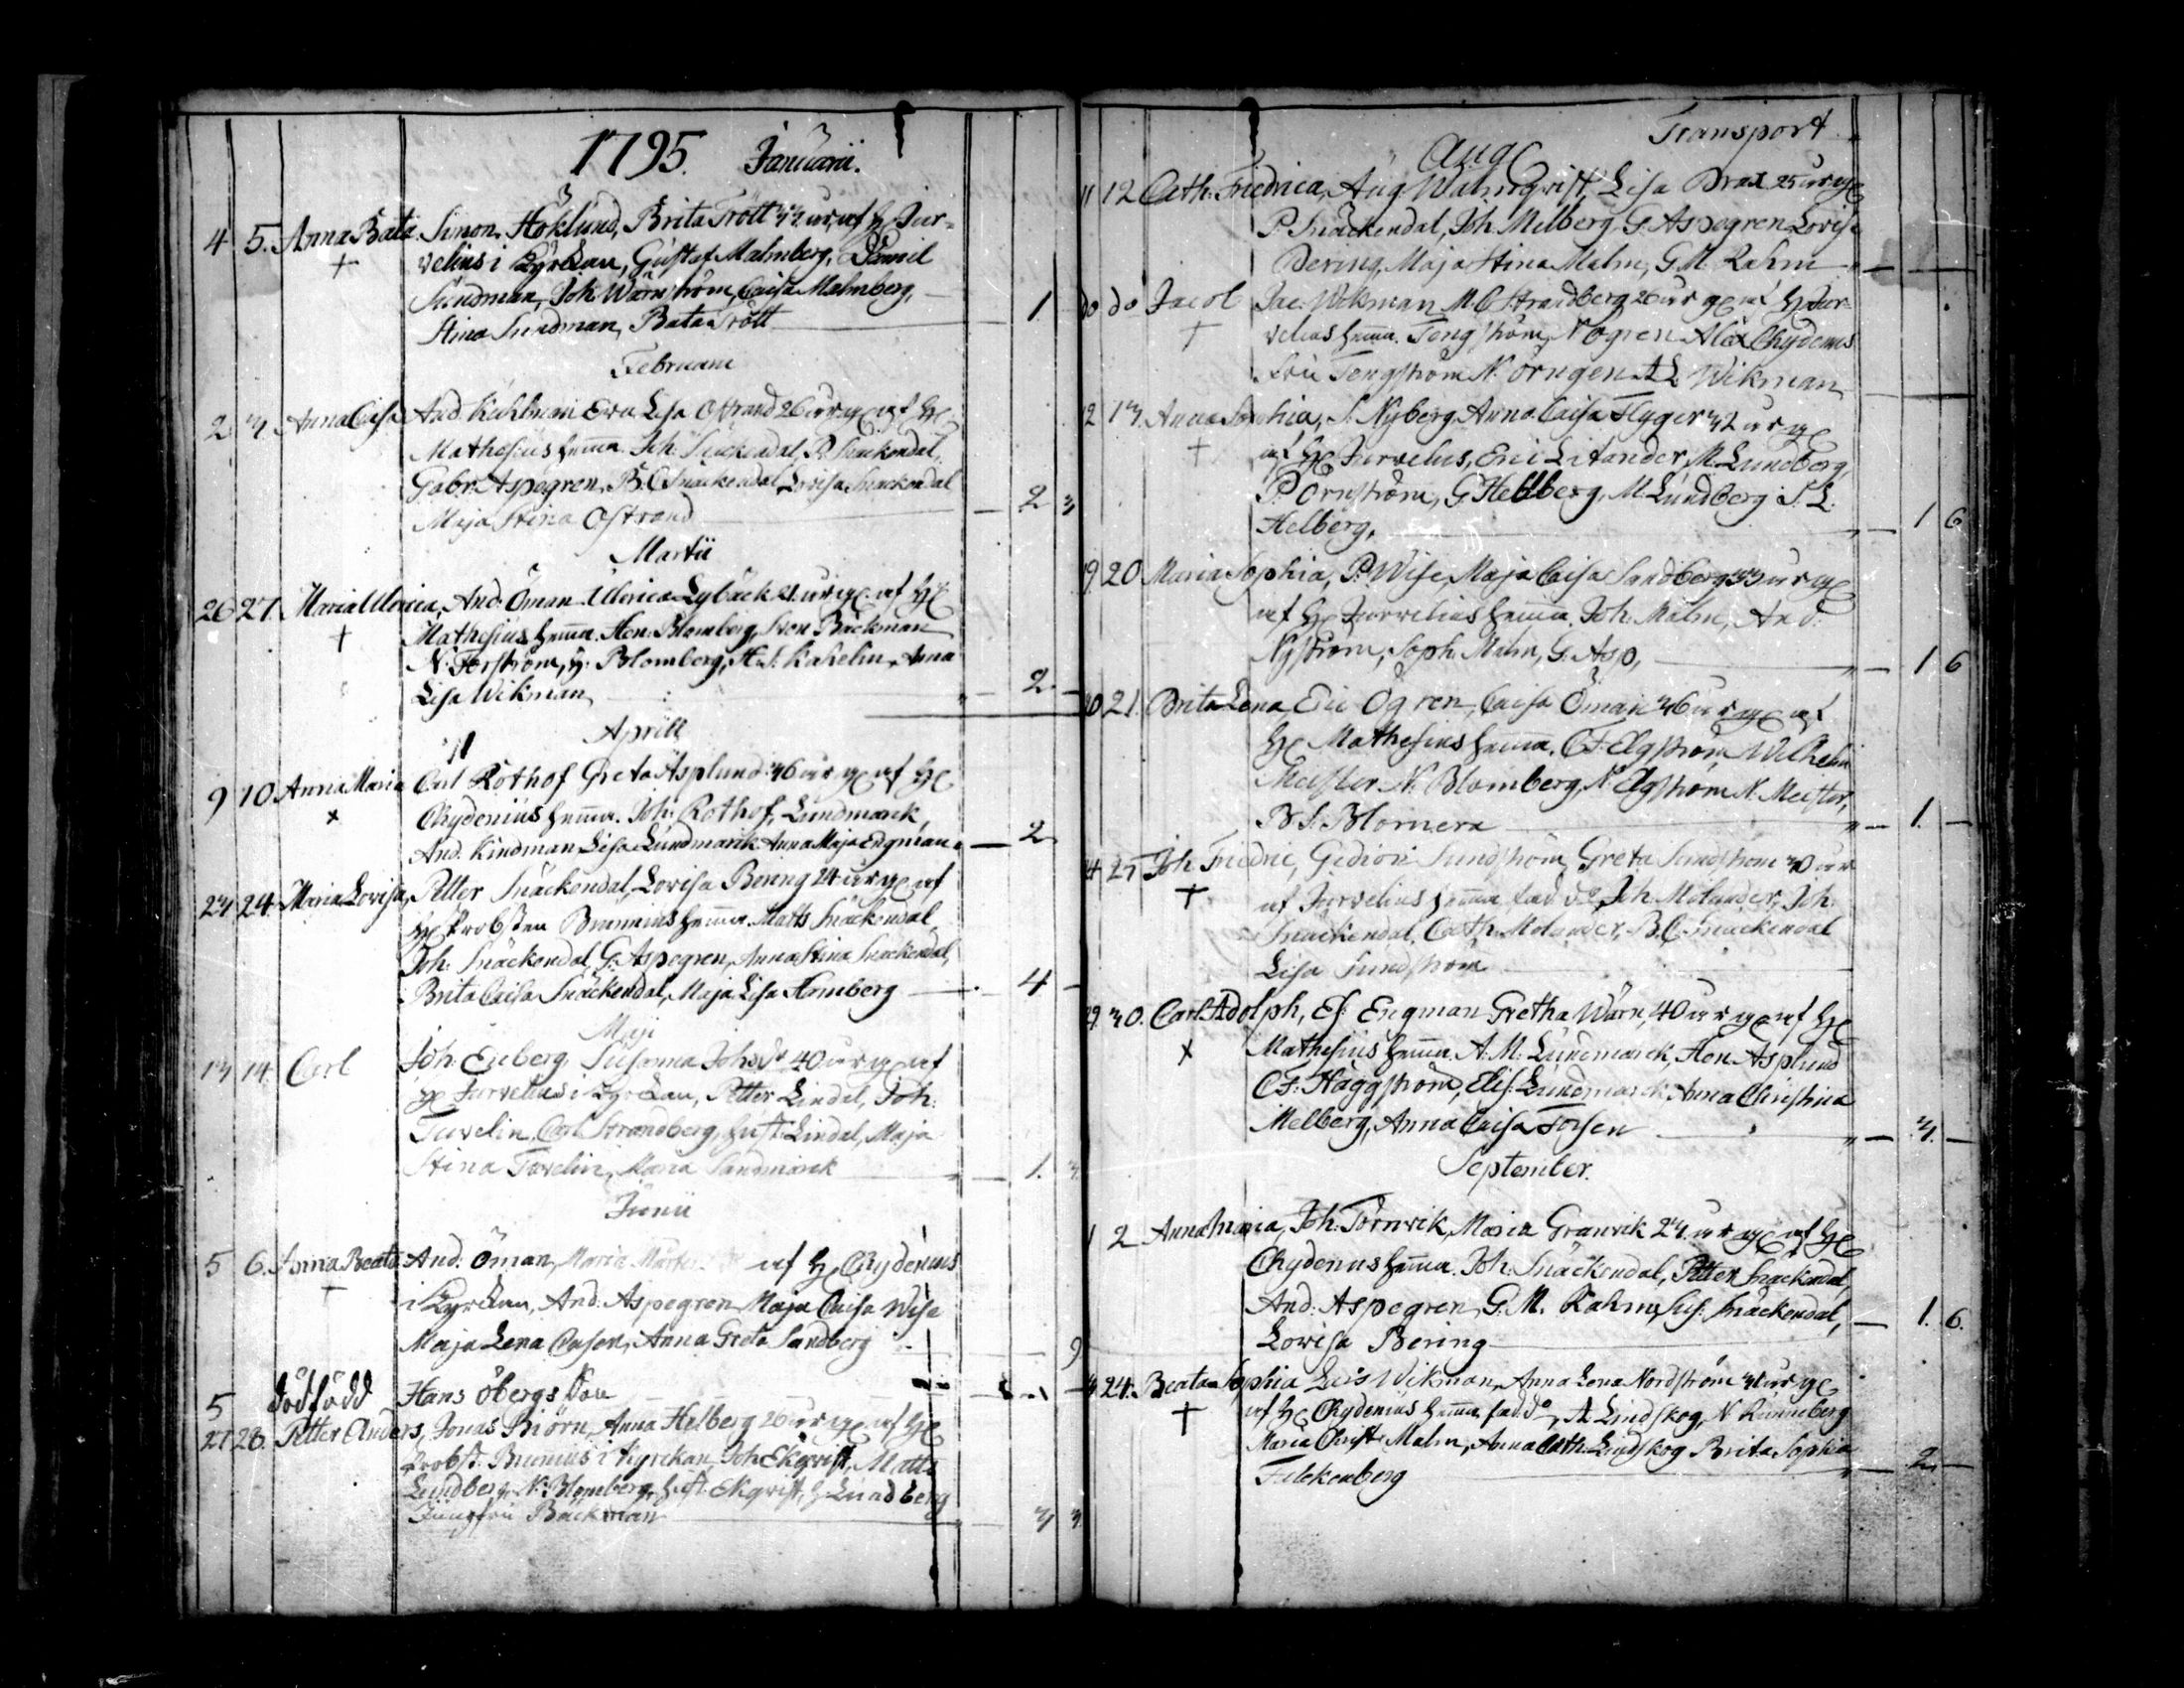 1795. Januarii.
4 5. Anna Bata Simon Höklund, Brita Trött 33 år, af H Jur-
velius i Kyrckan, Gustaf Malmberg, Daniel
Sundman, Joh Wärnström, Caisa Malmberg,
Stina Sundman, Bata Trött 1.
Februarii
2 3 Anna Caisa And. Kahlman Eva Lisa Ostrand 26 år g af H
Mathesius hemma. Joh. Snäckendal, P. Snäckendal,
Gabr. Aspegren, B. C Snäckendal Lovisa Snäckendal
Maja Stina Ostrand 2 3
Martii
26 27. Maria Ulrica, And. Öman Ulrica Lybäck 21 år g af H
Mathesius hemma. Hen: Blomberg, Sven Bäckman
N. Forström, H. Blomberg, H. S. Kahelin, Anna
Lisa Wikman 2
Aprill
9 10 Anna Maria Carl Rothof Greta Asplund 36 år g af H
Chydenius hemma. Joh: Rothof, Lundmarck,
And. Kindman Lisa Lundmarck Anna Maja Engman 2
23 24 Maria Lovisa, Petter Snäckendal, Lovisa Bering 24 år g af
H Probsten Brunnius hemma. Matts Snäckendal
Joh. Snäckendal, G. Aspegren, Anna Stina Snäckendal,
Brita Caisa Snäckendal, Maja Lisa Holmberg 4
Maji
13 14 Carl Joh. Enberg, Susanna Johsdr 40 år g af
H Jurvelius i Kyrckan, Petter Lindal, Joh.
Tuvelin, Carl Strandberg, hust. Lindal, Maja
Stina Tuvelin, Maria Sandmarck 1. 3
Junii
5 6. Anna Beata And: Öman, Maria af H Chydenius
i Kyrckan, And: Aspegren Maja Caisa Wise
Maja Lena Carsen, Anna Greta Sandberg 9
5 dödfödd Hans Öbergs Son
27 28. Petter Anders, Jonas Biörn, Anna Helberg 26 år g af H
Probst. Brunnius i Kyrckan, Joh Ekqvist, Matts
Lundberg, N. Blomberg, hust. Ekqvist, H Lundberg
Jungfru Bäckman 3 3
Transport
Aug
11 12 Cath: Friedrica, Aug Walmqvist, Lisa Brax 25 år g
P. Snäckendal, Joh Melberg, G. Aspegren Lovisa
Bering, Maja Stina Malm, G. M. Rahm
do do Jacob Jac: Wikman M. C Strandberg 26 år g af H Jur-
velius hemma. Tengström, N Ogren Alex Chydenius
Fru Tengström N. Örngen A L Wikman
12 13. Anna Sophia, S. Nyberg, Anna Caisa Flyger 32 år g
af H Jurvelius, Eric Litander, M. Lundberg,
P Ornström, G Hellberg, M. Lundberg S. L.
Helberg, 1 6
19 20 Maria Sophia, P. Wise, Maja Caisa Sandberg 33 år g
af H Jurvelius hemma. Joh: Malm, And.
Nyström, Soph. Malm, G. Asp, 1 6
20 21. Brita Lena Eric Ögren, Caisa Öman 36 år g af
H Mathesius hemma. C F. Elgström, Wilhelm
Meister N. Blomberg, N Elgström N. Meister,
B S. Blomera 1.
24 25 Joh Friedric, Gedion Sundström Greta Sundström 30 år
af Jurvelius hemma fadd Joh Molander, Joh.
Snäckendal, Cath. Molander, B. C. Snäckendal
Lisa Sundström
29 30. Carl Adolph, Es. Engman Gretha Wärn, 40 år g af H
Mathesius hemma. A. M. Lundmarck, Hen. Asplund
C F. Häggström, Elis. Lundmarck Anna Christina
Melberg, Anna Caisa Forsen 3.
September.
1 2 Anna Maria, Joh: Törnvik, Maria Granvik 23 år g af H
Chydenius hemma. Joh: Snäckendal, Petter Snäckendal,
And: Aspegren, G. M. Rahm, Sus. Snäckendal,
Lovisa Bering 1. 6.
24. Beata Sophia Lars Wikman, Anna Lena Nordström 31 år g
af H Chydenius hemma fadd, A Lindskog, N Runneberg
Maria Christ: Malm, Anna Cath. Lindskog Brita Sophia
Falckenberg 2